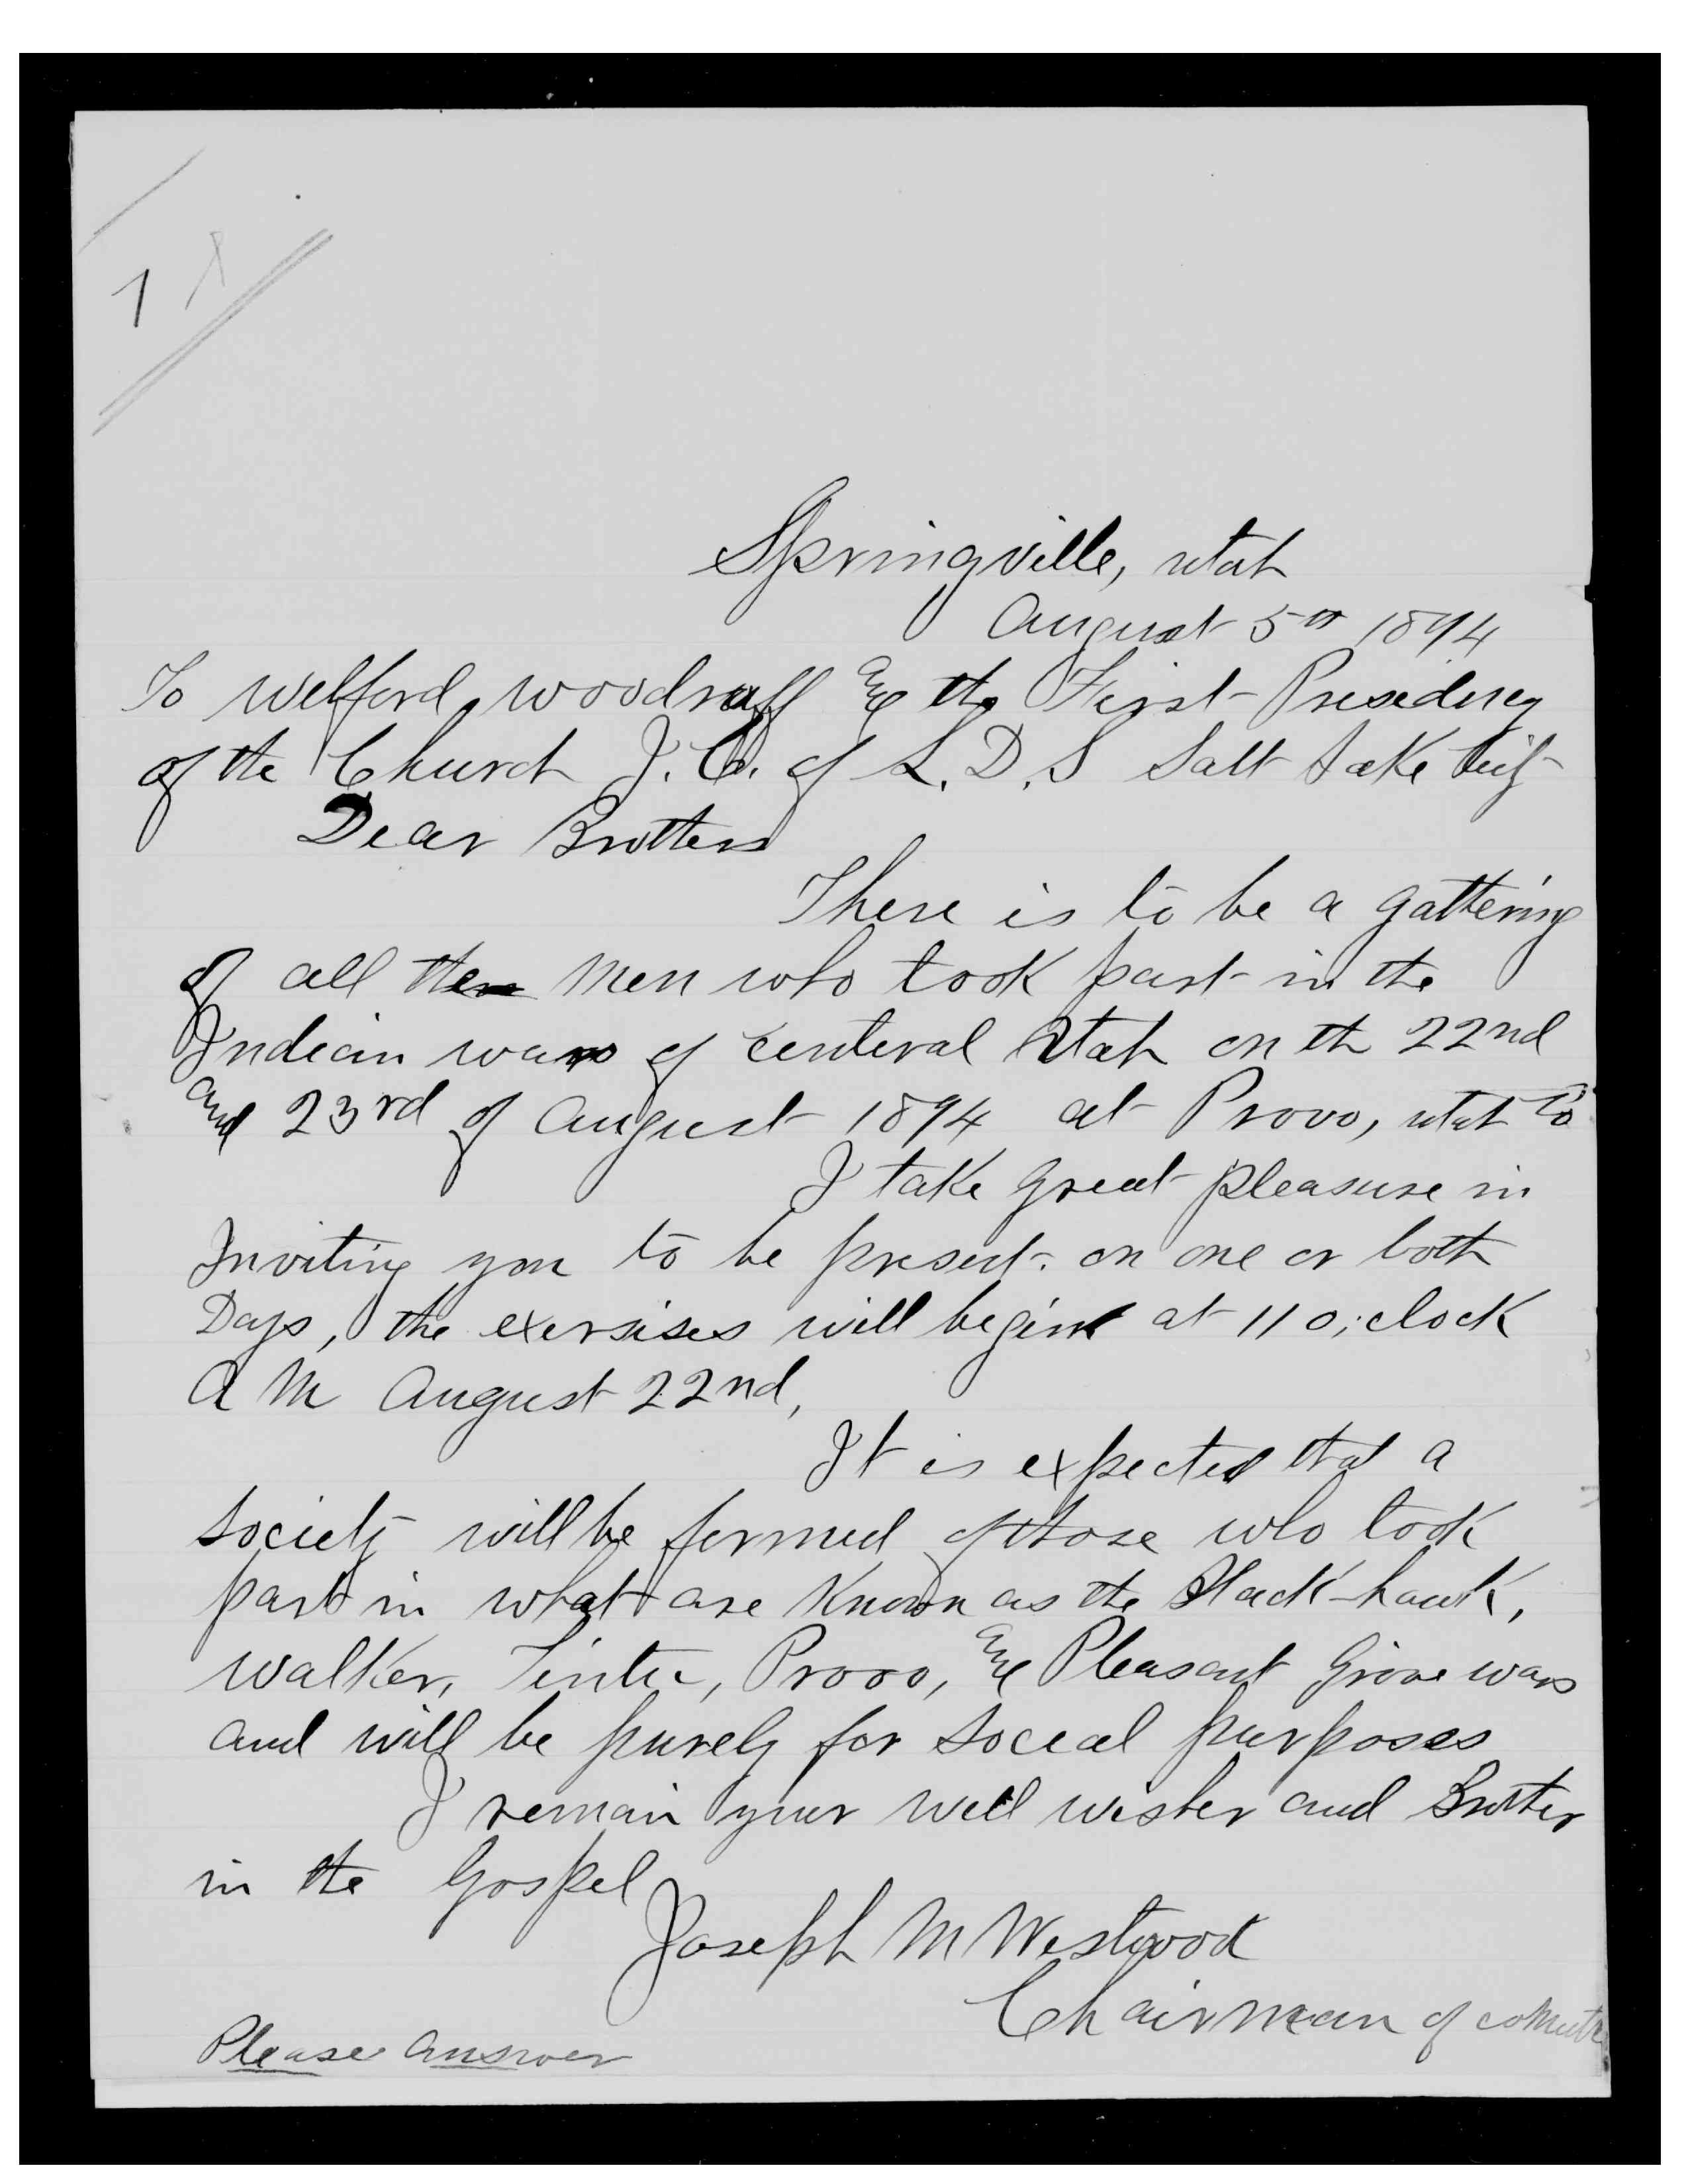 1
Springville, utah
August 5th 1894
To Welford, Woodruff and the First Presidency
of the Church J. C. of L. D. S Salt Lake City
Dear Brothers
There is to be a gathering
of all the men who took part in the
Indian wars of centeral Utah on th 22nd
and 23rd of August 1894 at Provo, utah to
I take great pleasure in
Inviting you to be present. on one or both
Days, the exersises will begin at 11 o;clock
A M August 22nd,
It is expected that a
society will be formed of those who took
part in what are Known as the Black-hawk,
walker, Tintic, Provo, and Pleasant Grove wars
and will be purely for soceal purposes
I remain your well wisher and Brother
in the Gospel
Joseph M Westwood
Chairman of
Please Answer